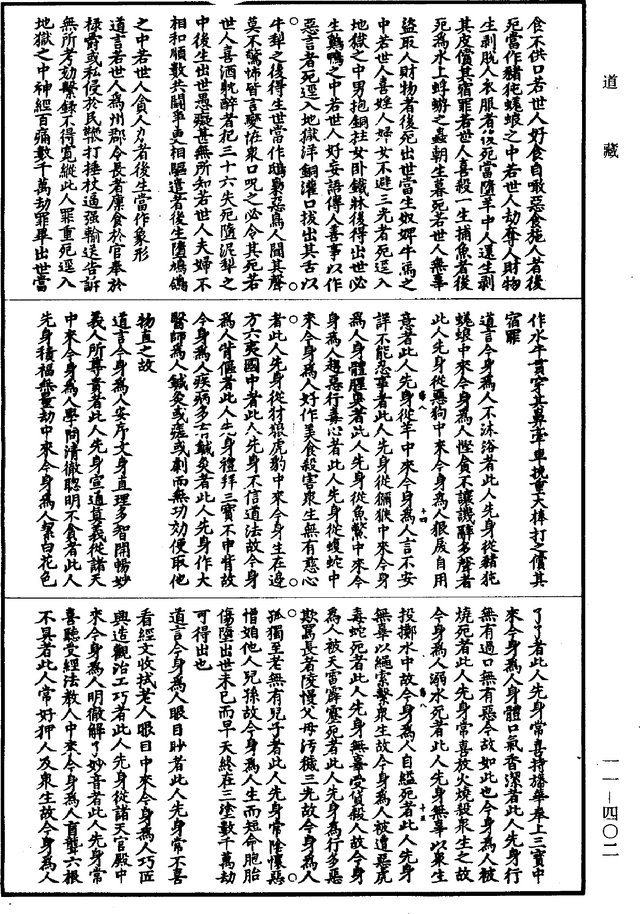 道藏
食不供口若世人好食自噉惡食施人者後
死當作豬狏蜣蜋之中若世人劫奪人財物
生剥脫人衣服者後死當墮羊中人還生剥
其皮償其宿罪若世人喜殺一生捕魚者後
死為水上蜉蝣之蟲朝生暮死若世人無事
盜取人財物者後死出世當生奴婢牛馬之
中若世人喜婬人婦女不避三光者死逕入
地獄之中男抱銅柱女卧鐵牀後得出世必
生鷄鴨之中若世人好妄語傳人喜事以作
惡言者死逕入地獄洋銅灌口拔出其舌以
牛犁之後得生世當作鵄梟惡鳥人聞其聲
莫不驚怖皆言變恠衆口呪之必令其死若
世人喜酒躭醉者犯三十六失死墮泥犁之
中後生出世愚癡甚無所知若世人夫婦不
相和順數共鬪爭更相驅遣者後生墮鳩鴿
之中若世人貪人力者後生當作象形
道言若世人為州郡令長者廪食於官奉於
禄爵或私侵於民鞭打捶杖逼强輸送告訴
無所考劾繫録不得寬縱此人罪重死逕入
地獄之中神經百痛數千萬劫罪畢出世當
作水牛貫穿其鼻牽車挽重大棒打之償其
宿罪
道言今身為人不沐浴者此人先身從豬狏
蜣蜋中來今身為人慳貪不讓譏辭多聲者
此人先身從惡狗中來今身為人狠戾自用
意者此人先身從羊中來今身為人言不安
諦不能忍事者此人先身從獼猴中來今身
為人身體腥臭者此人先身從魚鱉中來今
身為人趄惡行毒心者此人先身從蝮蛇中
來今身為人好作美食殺害衆生無有慈心
者此人先身從豺狼虎豹中來今身生在邊
方六夷國中者此人先身不信道法故今身
為人背傴者此人先身禮拜三寶不申背故
今身為人疾病多言鍼灸者此人先身作大
醫師為人鍼灸或瘥或劇而無功効便取他
物直之故
道言今身為人安序文身直理多智開暢妙
義人所尊貴者此人先身宣通真義從諸天
中來今身為人學問清徹聰明不貪者此人
先身積福無量劫中來今身為人絜白花色
了了者此人先身常喜持旛華奉上三寶中
來今身為人身體口氣香潔者此人先身行
無有過口無有惡今故如此也今身為人被
燒死者此人先身常喜放火燒殺衆生之故
今身為人溺水死者此人先身無辜以衆生
投擲水中故今身為人自縊死者此人先身
無辜以繩索繫衆生故今身為人被遭惡虎
毒蛇死者此人先身無辜受貨殺人故今身
為人被天雷霹靂死者此人先身為行多惡
欺罵長者陵慢父母汚穢三光故今身為人
孤獨至老無有兒子者此人先身常陰懷惡
憎妲他人兒孫故今身為人生而短命胞胎
傷墮出世未已而早夭終在三塗數千萬劫
可得出也
道言今身為人眼目眇者此人先身常不喜
看經文收拭老人眼目中來今身為人巧匠
興造觀治工巧者此人先身從諸天官殿中
來今身為人明徹解了妙音者此人先身常
喜聽受經法教人中來今身為人盲聾六根
不具者此人常好押人及衆生故今身為人
一一—四〇二